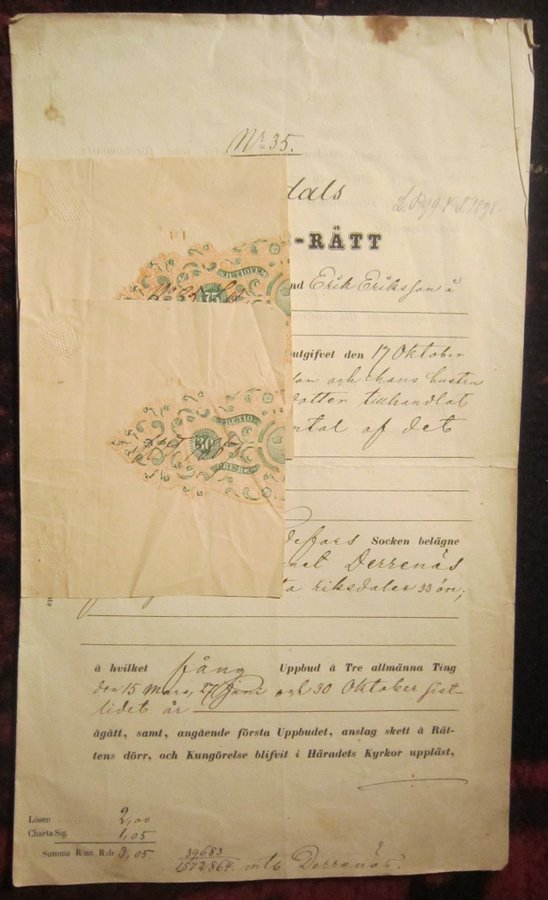 No 35.
dals
-RÄTT
nd Erik Eriksson i
75
utgifvet den 17 Oktober
och hans hustru
dotter tillhandlat
tal af det
TRETIO
30
ÖRE R
Socken belägne
Derrenäs
riksdaler 33 öre;
å hvilket fång Uppbud å Tre allmänna Ting
den 15 Mars, 27 Juni och 30 Oktober sist-
lidet år
ågått, samt, angående första Uppbudet, anslag skett å Rät-
tens dörr, och Kungörelse blifvit i Häradets Kyrkor uppläst,
Lösen 2,00
Charta Sig. 1,05
Summa R:mt R:dr 3,05
39683
1572864 mtl Derrenäs.